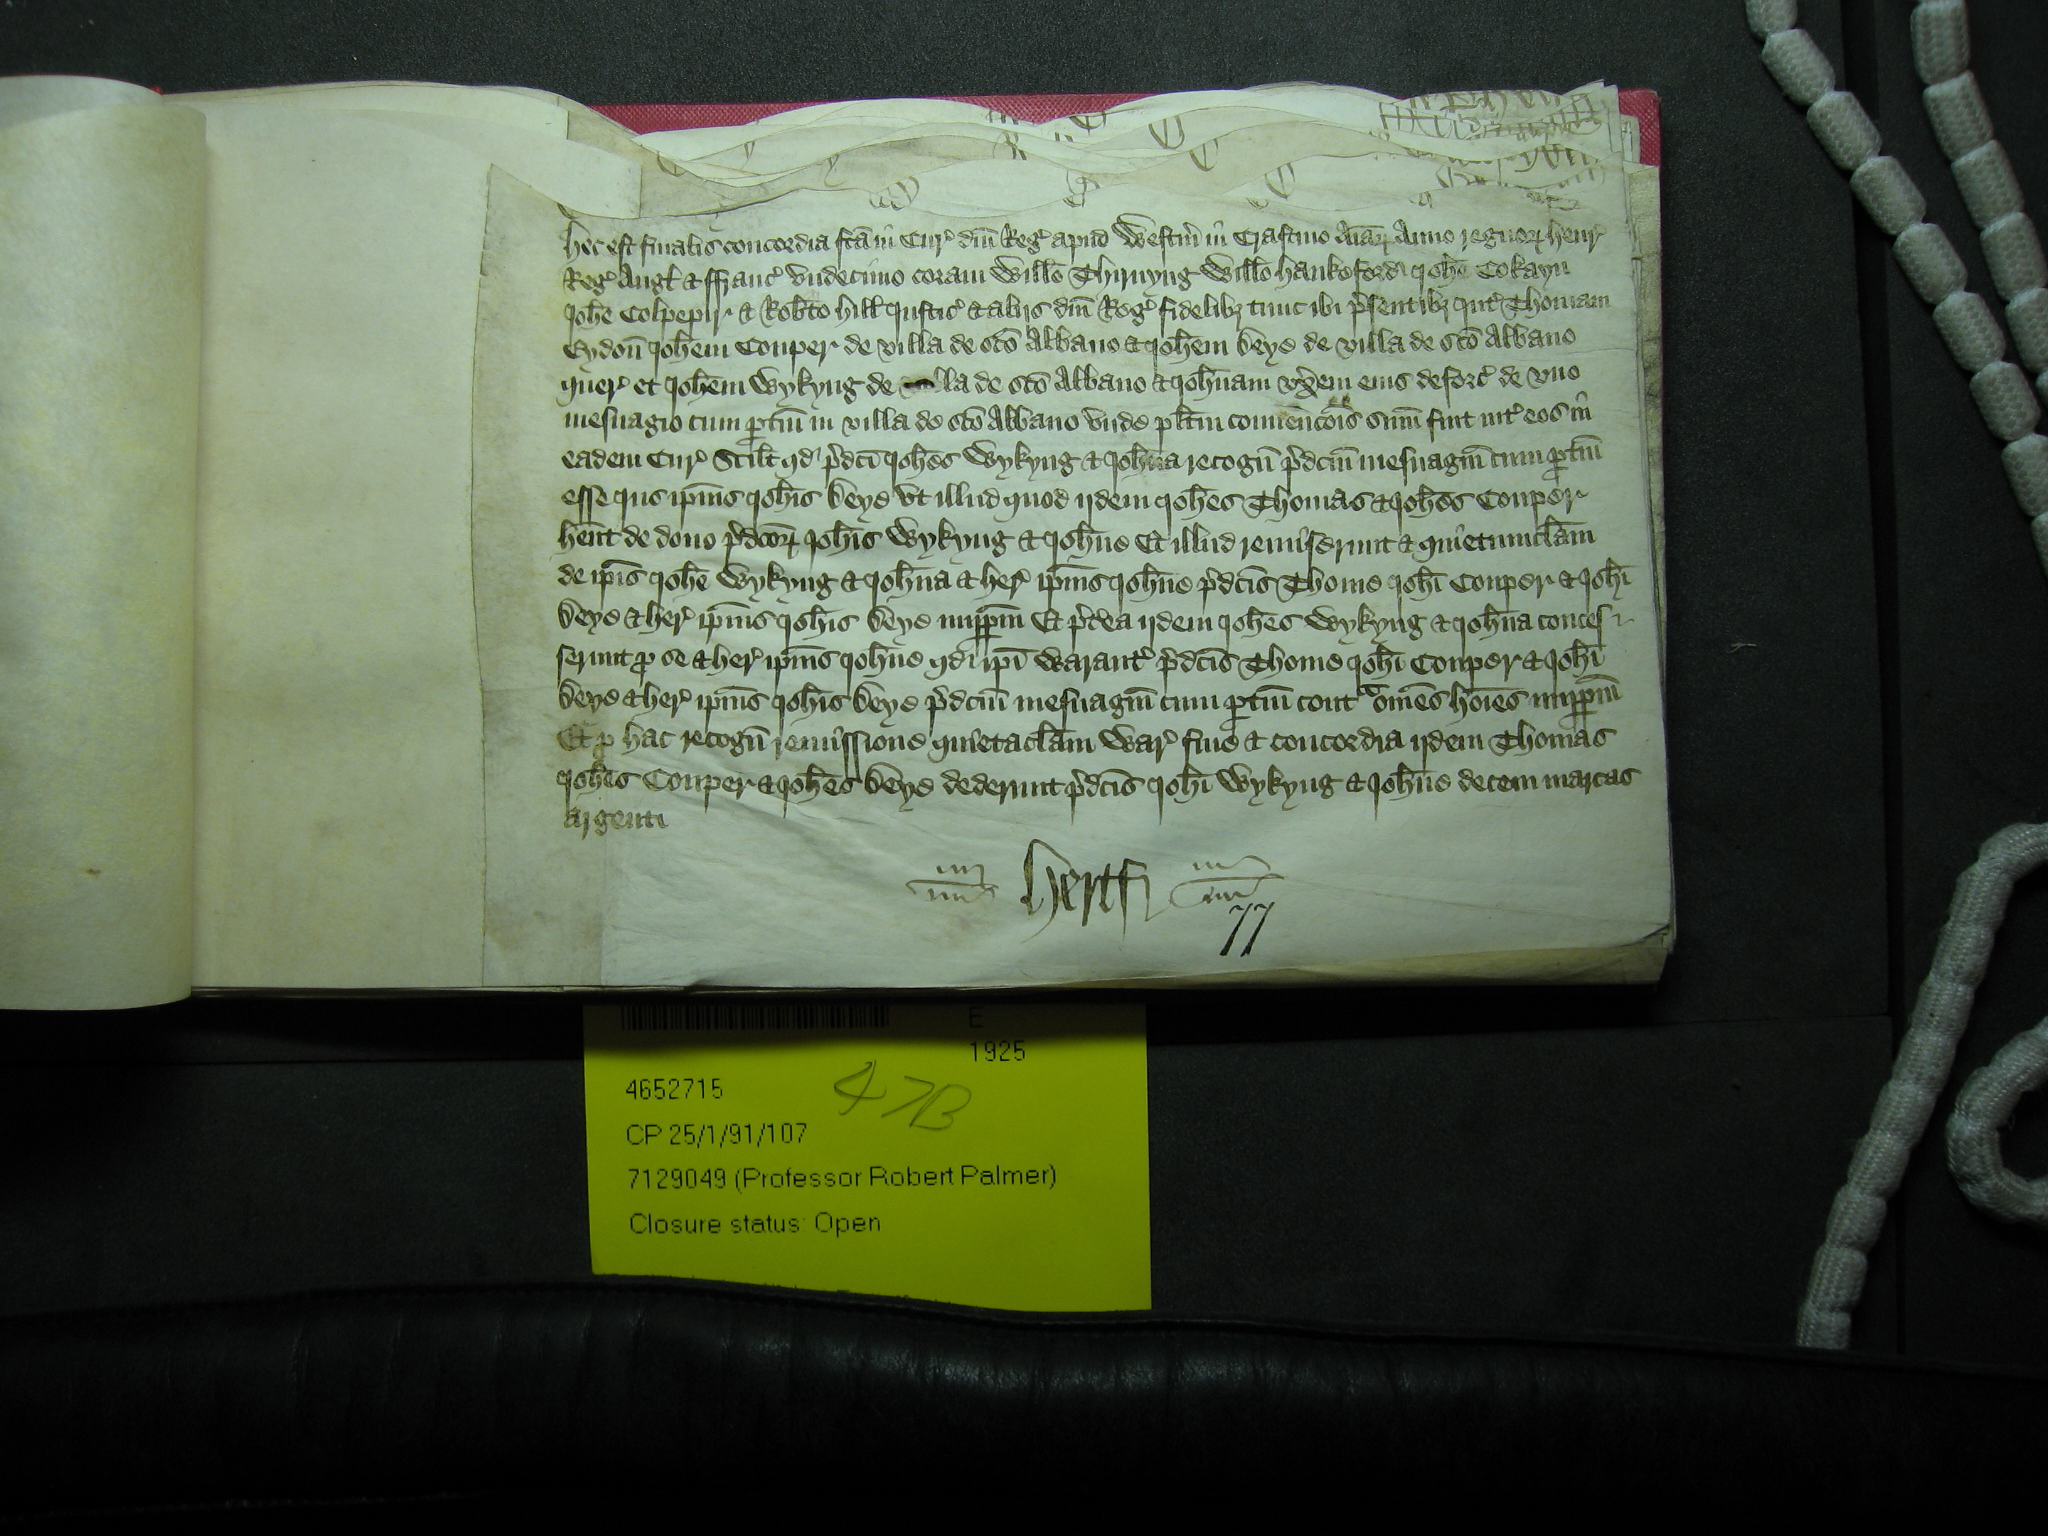 Hec est finalis concordia fcā in Cur' dn̄i Reg' apud Westm̄ in Crastino Aīaꝝ Anno regnoꝝ Henr'
Reg' Angl' & ffranc' vndecimo coram Willō Thirnyng Willō Hankeford Joh̄e Cokayn
Joh̄e Colpeper & Rob̄to Hill Justic' & alijs dn̄i Reg' fidelibꝫ tunc ibi p̄sentibꝫ Int' Thomam
Joh̄em Couper de villa de scō Albano & Joh̄em Keye de villa de scō Albano
quer' et Joh̄em Wykyng de la de scō Albano & Joh̄nam vx̄em eius deforc' de vno
mesuagio cum ꝑtin̄ in villa de scō Albano vnde pl̄itm conuenc̄ois sum̄ fuit int' eos in
eadem Cur' Scil't qd' p̄dcī Joh̄es Wykyng & Joh̄na recogn̄ p̄dcm̄ mesuagiu' cum ꝑtin̄
esse Jus ip̄ius Joh̄is Keye vt illud quod ijdem Joh̄es Thomas & Joh̄es Couper
hēnt de dono p̄dcoꝝ Joh̄is Wykyng & Joh̄ne Et illud remiserunt & quietumclam̄
de ip̄is Joh̄e Wykyng & Joh̄na & her' ip̄ius Joh̄ne p̄dcīs Thome Joh̄i Couper & Joh̄i
Keye & her' ip̄ius Joh̄is Keye imꝑꝑm̄ Et p̄t'ea ijdem Joh̄es Wykyng & Joh̄na conces
serunt ꝑ se & her' ip̄ius Joh̄ne qd' ip̄i Warant' p̄dcīs Thome Joh̄i Couper & Joh̄i
Keye & her' ip̄ius Joh̄is Keye p̄dcm̄ mesuagiu' cum ꝑtin̄ contᵃ om̄es hōies imꝑꝑm̄
Et ꝑ hac recogn̄ remissione quietaclam̄ War' fine & concordia ijdem Thomas
Joh̄es Couper & Joh̄es Keye dederunt p̄dcīs Joh̄i Wykyng & Joh̄ne decem marcas
argenti
Hertf
77
E
1925
4652715
47B
CP 25/1/91/107
7129049 (Professor Robert Palmer)
Closure status: Open